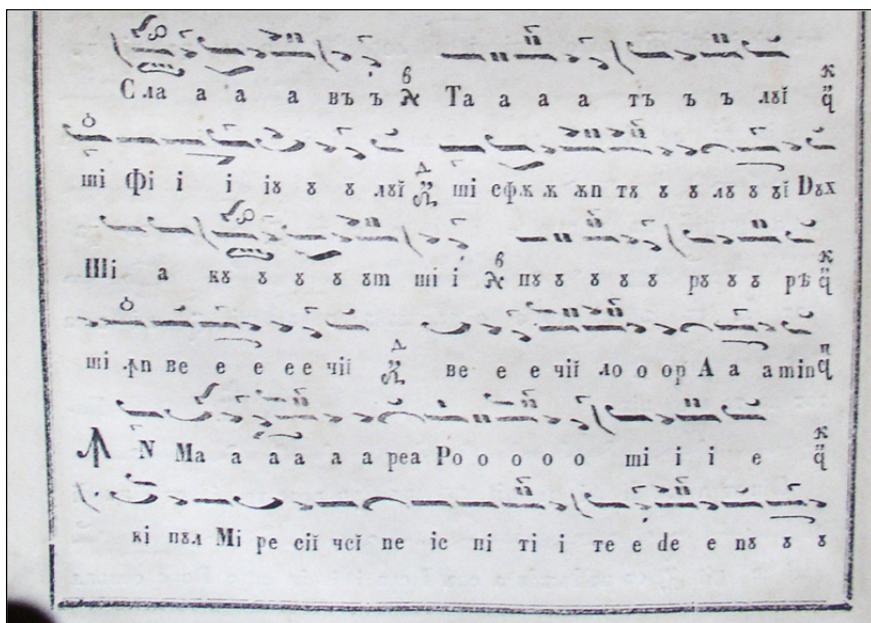 Сла а а а въ ъ Та а а а тъ ъ ъ лꙋї
ші Фі і і іꙋ ꙋ ꙋ лꙋї ші сфѫ ѫ ѫn тꙋ ꙋ ꙋ лꙋ ꙋ ꙋї Dꙋх
Ші а кꙋ ꙋ ꙋ ꙋ ꙋm ші і пꙋ ꙋ ꙋ ꙋ ꙋ рꙋ ꙋ ꙋ рѣ
ші ꙟn ве е е е е чїї ве е е чїї ло о ор А а amin
ꙟ N Ма а а а а а реа Ро о о о о ші і і е
кі пꙋл Мі ре сїї чеї пе іс пі ті і те е de е nꙋ ꙋ ꙋ